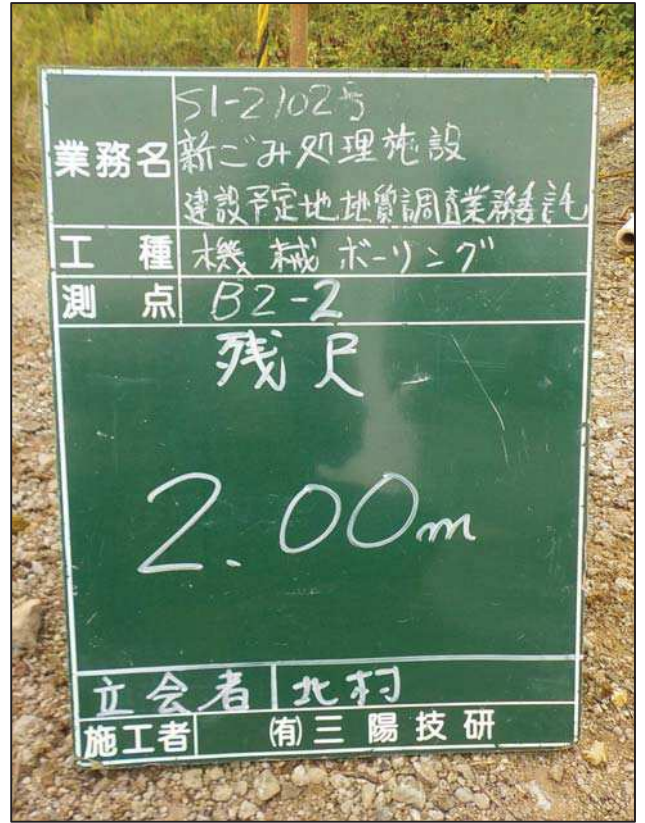 業務名
S1-2102号
新ごみ処理施設
建設予定地地質調査業務委託
工種 機械ボーリング
測点 B2-2
残尺
2.00m
立会者 北村
施工者 (有)三陽技研